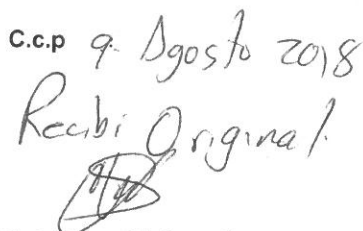 C.c.p 9. Agosto 2018
Recibi Original.